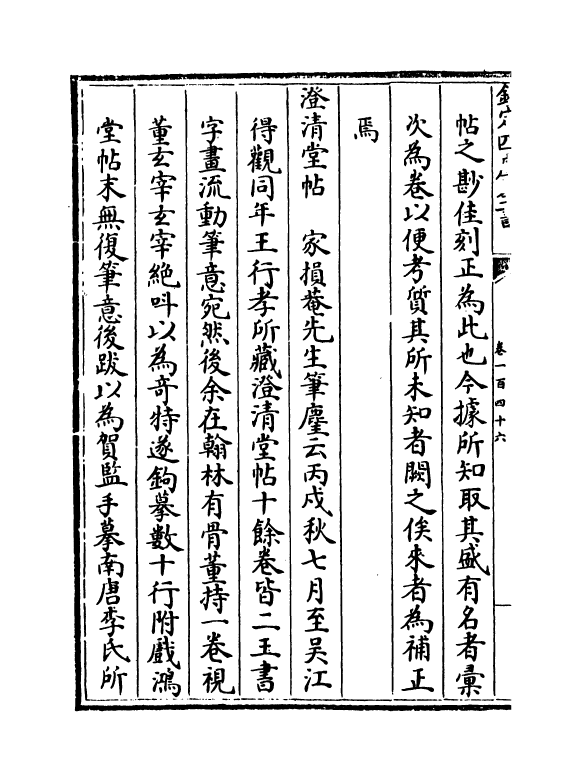 帖之尠佳刻正為此也今據所知取其盛有名者彙
次為卷以便考質其所未知者闕之俟來者為補正
焉
澄清堂帖　家損菴先生筆麈云丙戍秋七月至吳江
得觀同年王行孝所藏澄清堂帖十餘卷皆二王書
字畫流動筆意宛然後余在翰林有骨董持一卷視
董玄宰玄宰絶呌以為竒特遂鉤摹數十行附戲鴻
堂帖末無復筆意後跋以為賀監手摹南唐李氏所
卷一百四十六